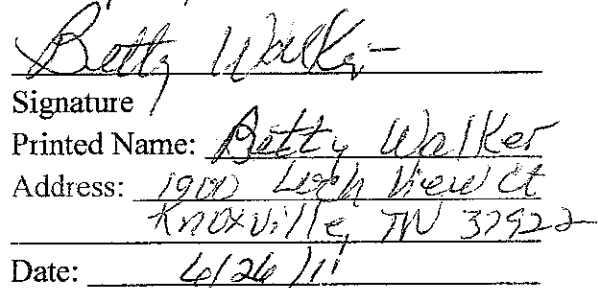 Betty Walker
Signature
Printed Name: Betty Walker
Address: 1900 Loch View Ct
Knoxville, TN 37922
Date: 6/26/11